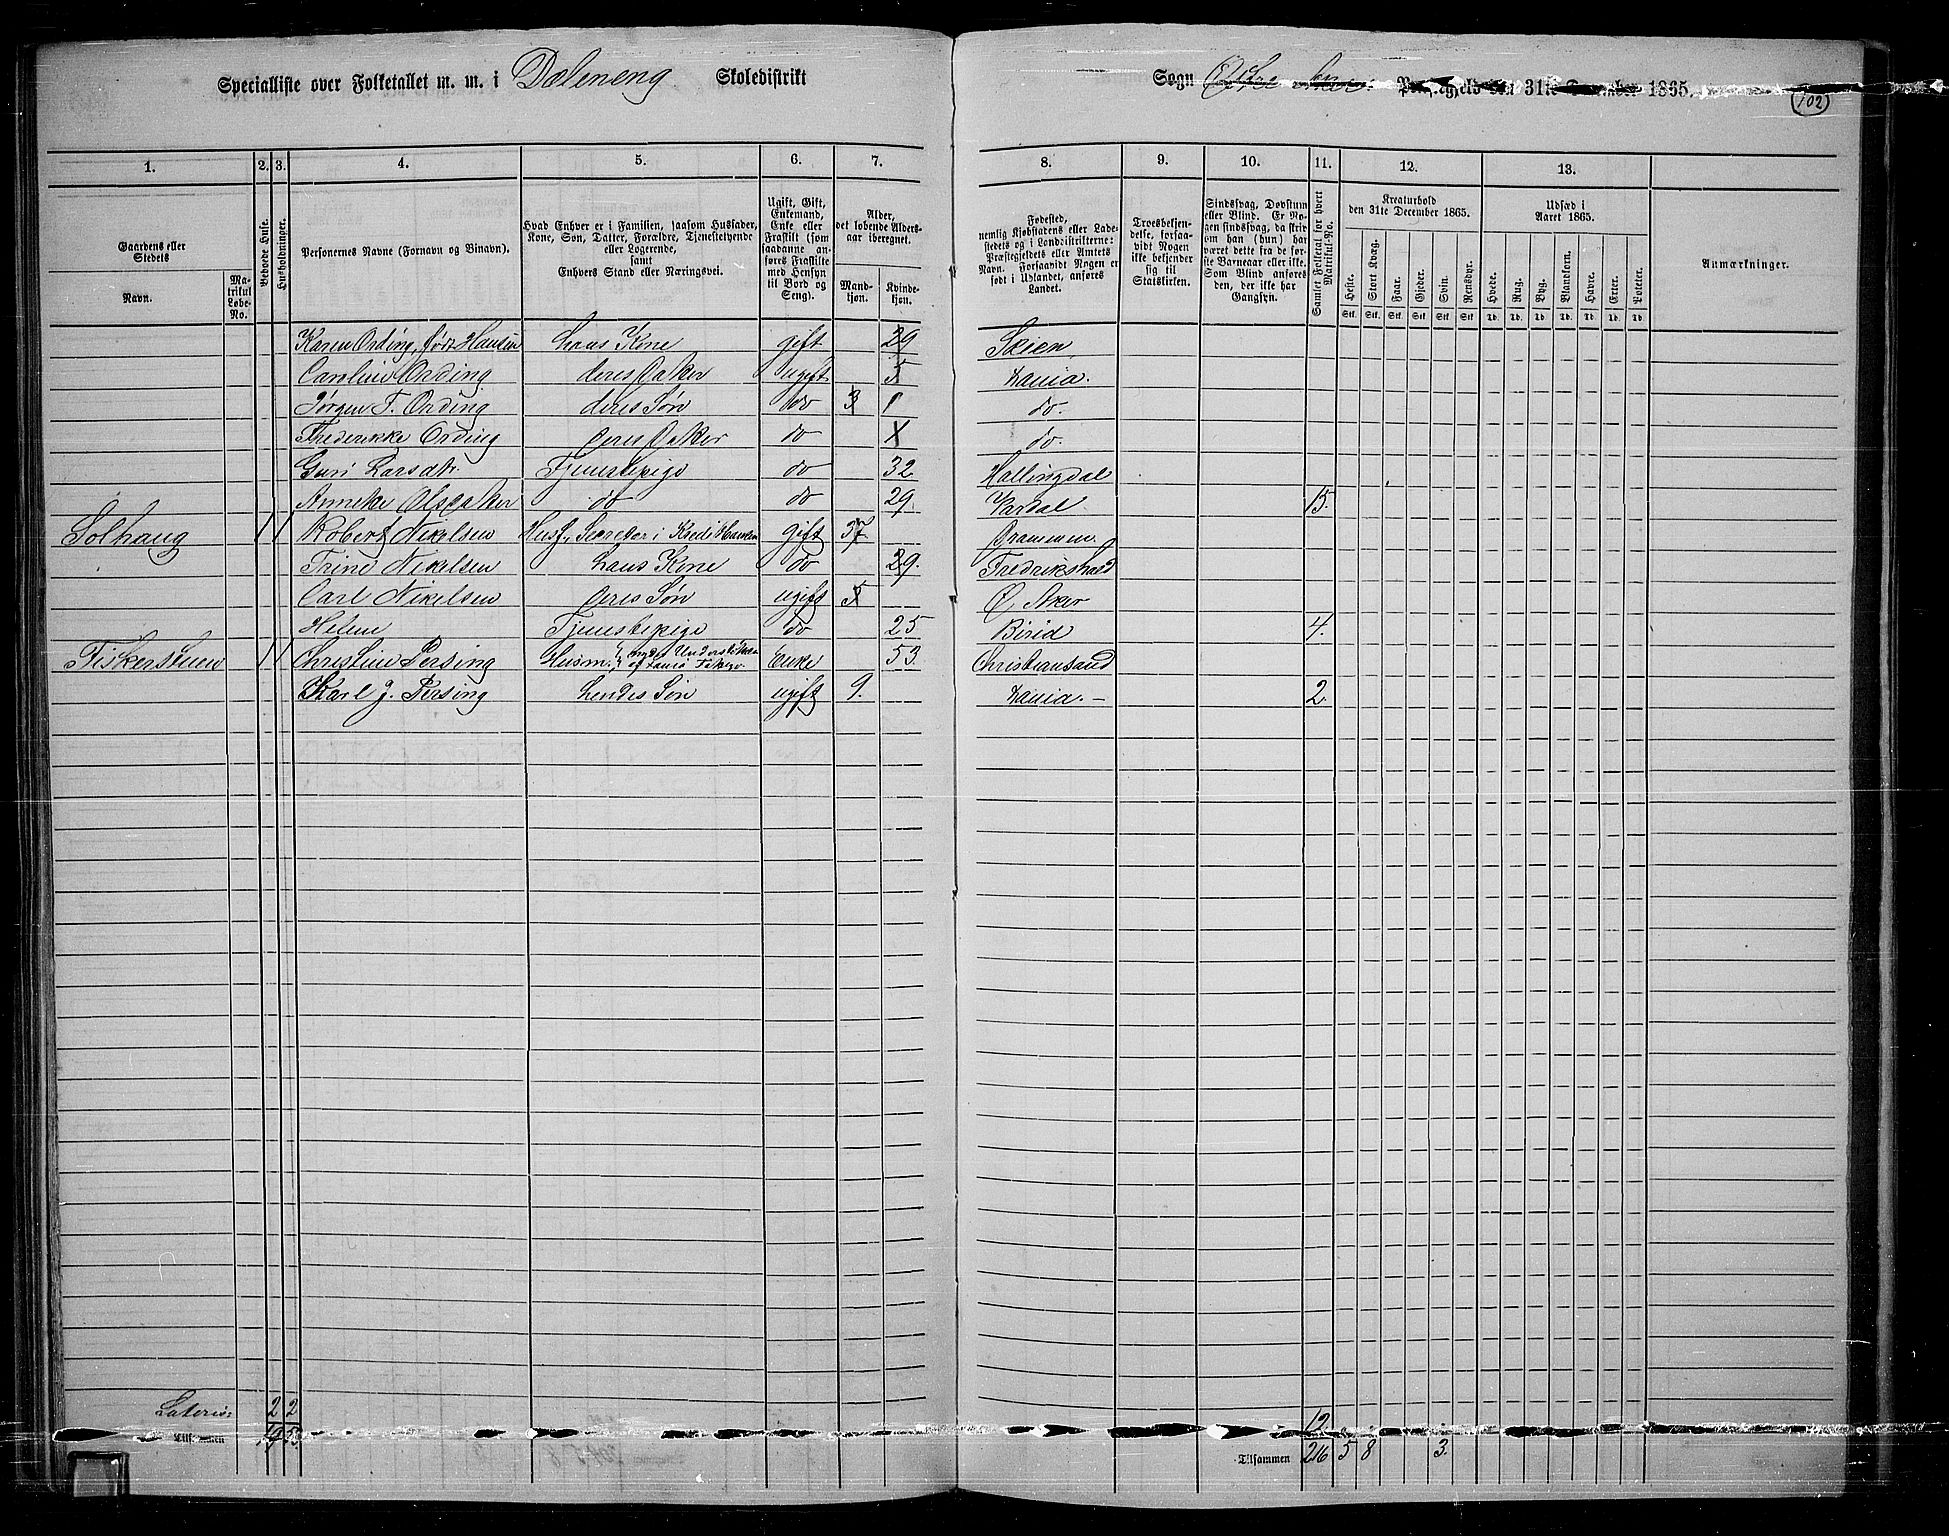 Specialliste over Folketallet m. m. i Dæleneng Skoledistrikt Sogn Østre Aker Præstegjeld den 31te December 1865.
102
1. 2. 3. 4. 5. 6. 7. 8. 9. 10. 11. 12. 13.
Gaardens eller Stedets
Navn.
Matrikul Løbe-No.
Beboede Huse.
Husholdninger.
Personernes Navne (Fornavn og Binavn).
Hvad Enhver er i Familien, saasom Husfader, Kone, Søn, Datter, Forældre, Tjenestetyende eller Logerende, samt Enhvers Stand eller Næringsvei.
Ugift, Gift, Enkemand, Enke eller Fraskilt (som saadanne anføres Fraskilte med Hensyn til Bord og Seng).
Alder, det løbende Aldersaar iberegnet.
Mandkjøn.
Kvindekjøn.
Fødested, nemlig Kjøbstadens eller Ladestedets og i Landdistrikterne: Præstegjeldets eller Amtets Navn. Forsaavidt Nogen er født i Udlandet, anføres Landet.
Troesbekjendelse, forsaavidt Nogen ikke bekjender sig til Statskirken.
Sindssvag, Døvstum eller Blind. Er Nogen sindssvag, da skrives om han (hun) har været dette fra de første Barneaar eller ikke. Som Blind anføres den, der ikke har Gangsyn.
Samlet Folketal for hvert Matrikul-No.
Kreaturhold den 31te December 1865.
Heste. Stort Kvæg. Faar. Gjeder. Svin. Rensdyr.
Stk. Stk. Stk. Stk. Stk. Stk
Udsæd i Aaret 1865.
Hvede. Rug. Byg. Blandkorn. Havre. Erter. Poteter.
Td. Td. Td. Td. Td. Td. Td.
Anmærkninger.
Karen Ording, født Hansen hans Kone gift 29 Skien
Caroline Ording deres Datter ugift 5 Lania.
Jørgen F. Ording deres Søn do 3 1 do.
Frederikke Ording deres Datter do do.
Guri Larsdtr. Tjenestepige do 32 Hallingdal
Anneke Olsdatter do do 29 Vardal 15.
Solhaug 1 1 Robert Nikelsen Husf, gift 37 Drammen
Trine Nikelsen hans Kone do 29. Fredrikshald
Carl Nikelsen deres Søn ugift 5 Ø Aker
Helene Tjenestepige do 25 Birid 4.
Fiskerstuen 1 1 Christine Persing Husm. Enke 53. Christiansand
Karl J. Persing hendes Søn ugift 9. Lania. — 2
Lateris: 2 2 12
Tilsammen 19 53 Tilsammen 216 5 8 3.